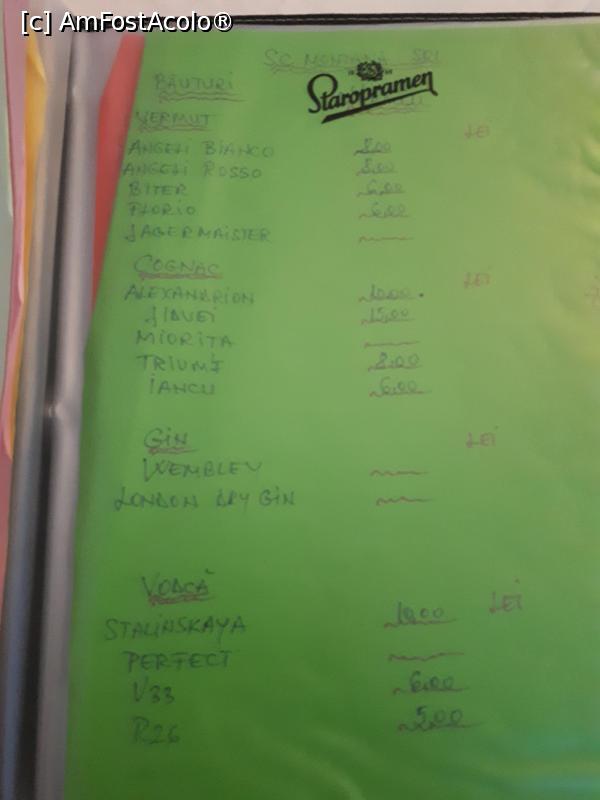 [c] AmFostAcolo®
SC MONTANA SRL
Staropramen
BĂUTURI
VERMUT LEI
ANGELI BIANCO 8,00
ANGELI ROSSO 8,00
BITER 6,00
FLORIO 6,00
JAGERMAISTER
COGNAC LEI
ALEXANDRION 10,00
JIDVEI 15,00
MIORIȚA
TRIUMF 8,00
IANCU 6,00
GIN LEI
WEMBLEY
LONDON DRY GIN
VODCĂ LEI
STALINSKAYA 10,00
PERFECT
V33 6,00
R26 5,00